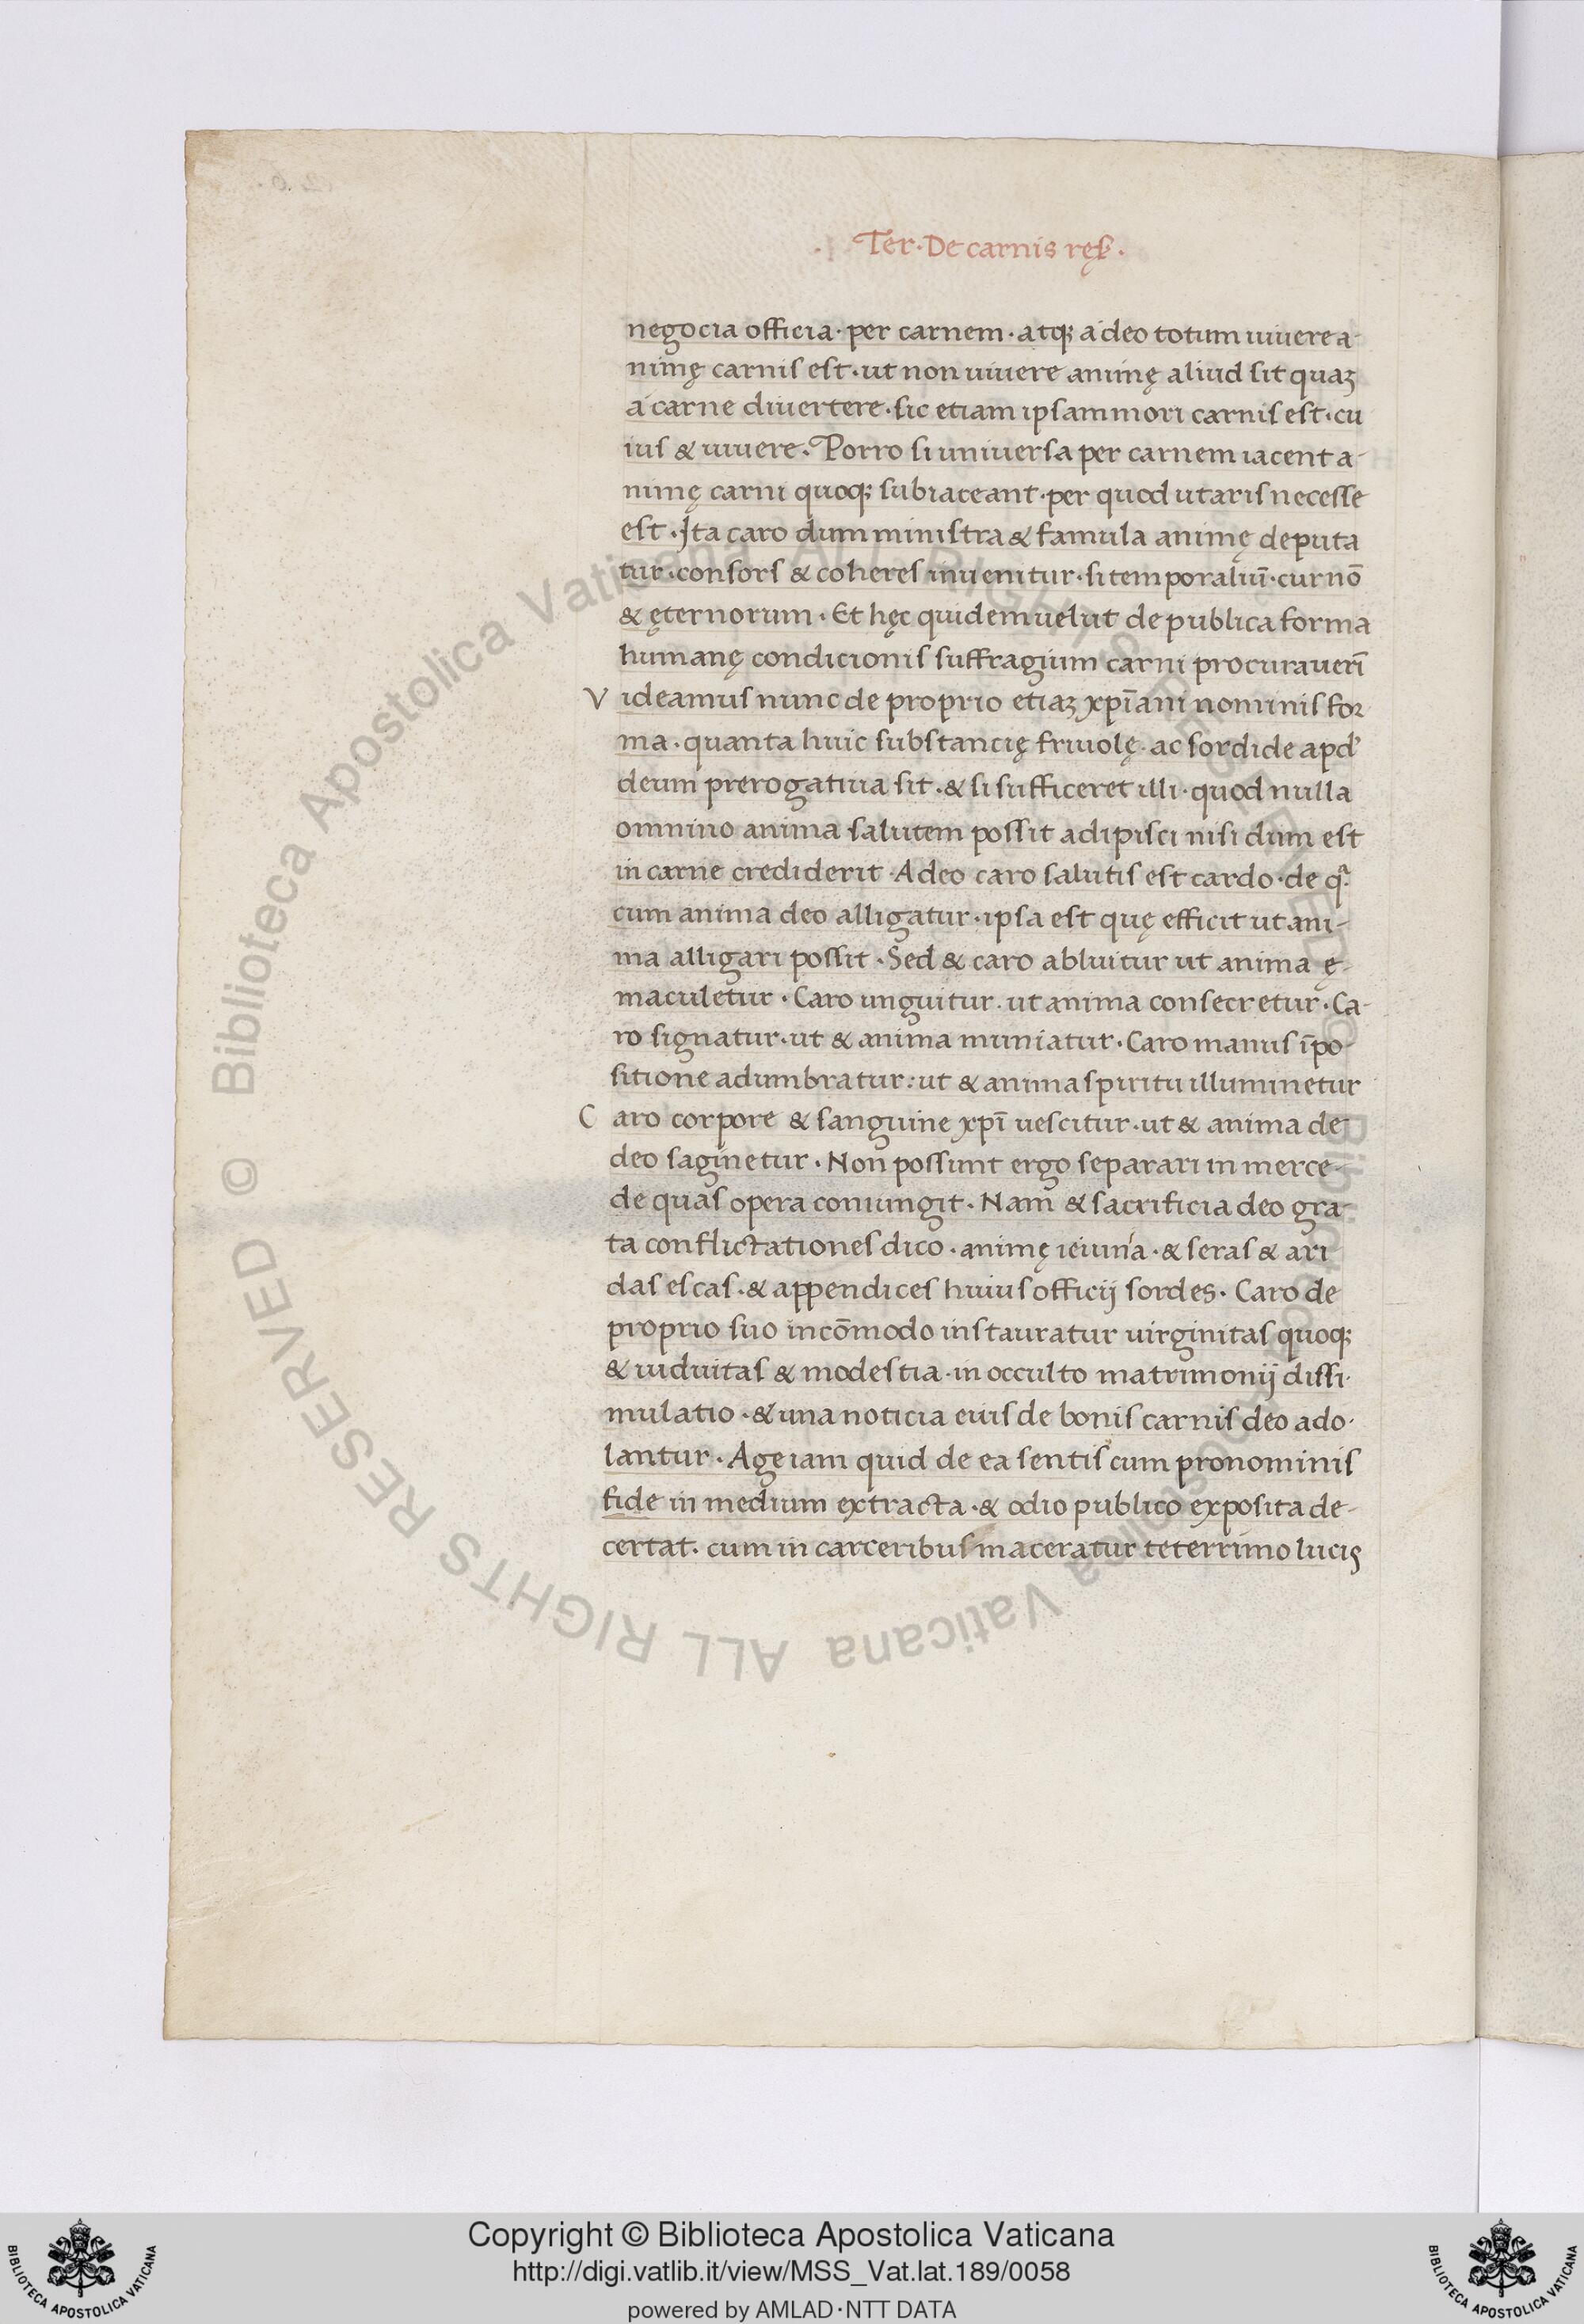 Ter · De carnis ręſ ·
negocia officia · per carnem · atqꝫ adeo totum uiuere a-
nimę carnis est · ut non uiuere animę aliud sit quaꝫ
a carne diuertere · sic etiam ipsam mori carnis est · cu
ius & uiuere · Porro si uniuersa per carnem iacent a-
nimę carni quoqꝫ subiaceant · per quod utaris necesse
est · Ita caro dum ministra & famula animę deputa
tur · consors & coheres inuenitur · si temporaliuz̄ · cur nō
& ęternorum · Et hęc quidem uelut de publica forma
humanę condicionis suffragium carni procurauerī
Videamus nunc de proprio etiaꝫ xp̄iani nominis for
ma · quanta huic substancię friuolę · ac sordide apd'
deum prerogatiua sit · & si sufficeret illi · quod nulla
omnino anima salutem possit adipisci nisi dum est
in carne crediderit · Adeo caro salutis est cardo · de qª
cum anima deo alligatur · ipsa est quę efficit ut ani-
ma alligari possit · Sed & caro abluitur ut anima ę-
maculetur · Caro unguitur · ut anima consecretur · Ca-
ro signatur · ut & anima muniatur · Caro manus īpo-
sitione adumbratur : ut & anima spiritu illuminetur
Caro corpore & sanguine xp̄i uescitur · ut & anima de
deo saginetur · Non possunt ergo separari in merce-
de quas opera coniungit · Nam & sacrificia deo gra-
ta conflictationes dico · animę ieiunia · & seras & ari
das escas · & appendices huius officij sordes · Caro de
proprio suo incōmodo instauratur uirginitas quoqꝫ
& uiduitas & modestia · in occulto matrimonij dissi-
mulatio · & una noticia eius de bonis carnis deo ado-
lantur · Age iam quid de ea sentis cum pro nominis
fide in medium extracta · & odio publico exposita de-
certat · cum in carceribus maceratur teterrimo lucis
Biblioteca Apostolica Vaticana ALL RIGHTS RESERVED ©
Biblioteca Apostolica Vaticana ALL RIGHTS RESERVED ©
Copyright © Biblioteca Apostolica Vaticana
http://digi.vatlib.it/view/MSS_Vat.lat.189/0058
powered by AMLAD·NTT DATA
BIBLIOTECA APOSTOLICA VATICANA
BIBLIOTECA APOSTOLICA VATICANA